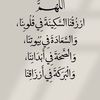 اللهُمَّ
ارْزُقْنَا السَّكِينَةَ فِي قُلُوبِنَا،
وَالسَّعَادَةَ فِي بُيُوتِنَا،
وَالصِّحَّةَ فِي أَبْدَانِنَا،
وَالْبَرَكَةَ فِي أَرْزَاقِنَا